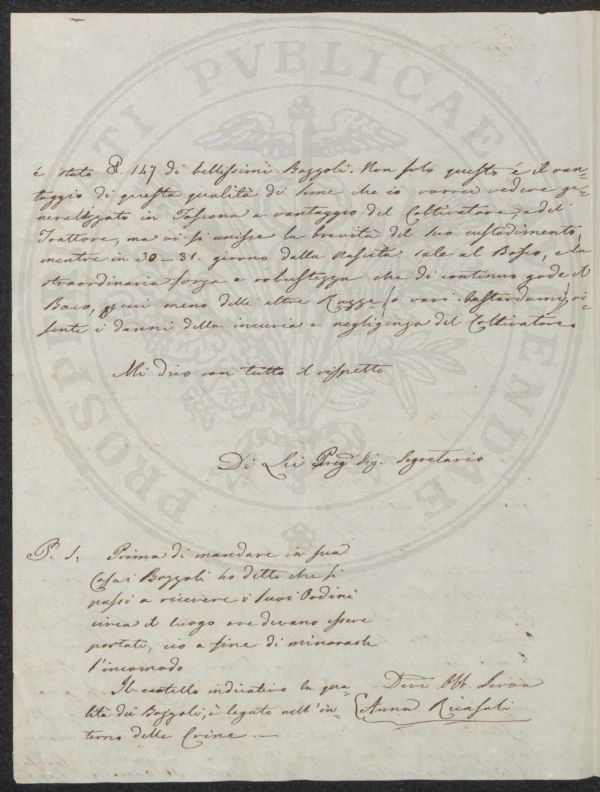 è stato ℔. 147 di bellissimi Bozzoli. Non solo questo è il van-
taggio di questa qualità di seme che io vorrei vedere ge-
neralizzato in Toscana a vantaggio del Coltivatore, e del
Trattore, ma vi si unisce la brevità del suo custodimento,
mentre in 30-31. giorno dalla Nascita sale al Bosco, e la
straordinaria forza e robustezza che di continuo gode il
Baco, cui meno delle altre Razze (o vari bastardumi) ri-
sente i danni della incuria e negligenza del Coltivatore.
Mi dico con tutto il rispetto
Di Lei Sig. Segretario
P. S. Prima di mandare in sua
Casa i Bozzoli ho detto che si
passi a ricevere i suoi Ordini
circa il luogo ove devano essere
portati, ciò a fine di minorarle
l'incomodo
Il cartello indicativo la qua-
lità dei Bozzoli, è legato nell'in
terno delle Crine.
Dev. Obb. Serva
Anna
PROSPERITATI PVBLICAE AVGENDAE